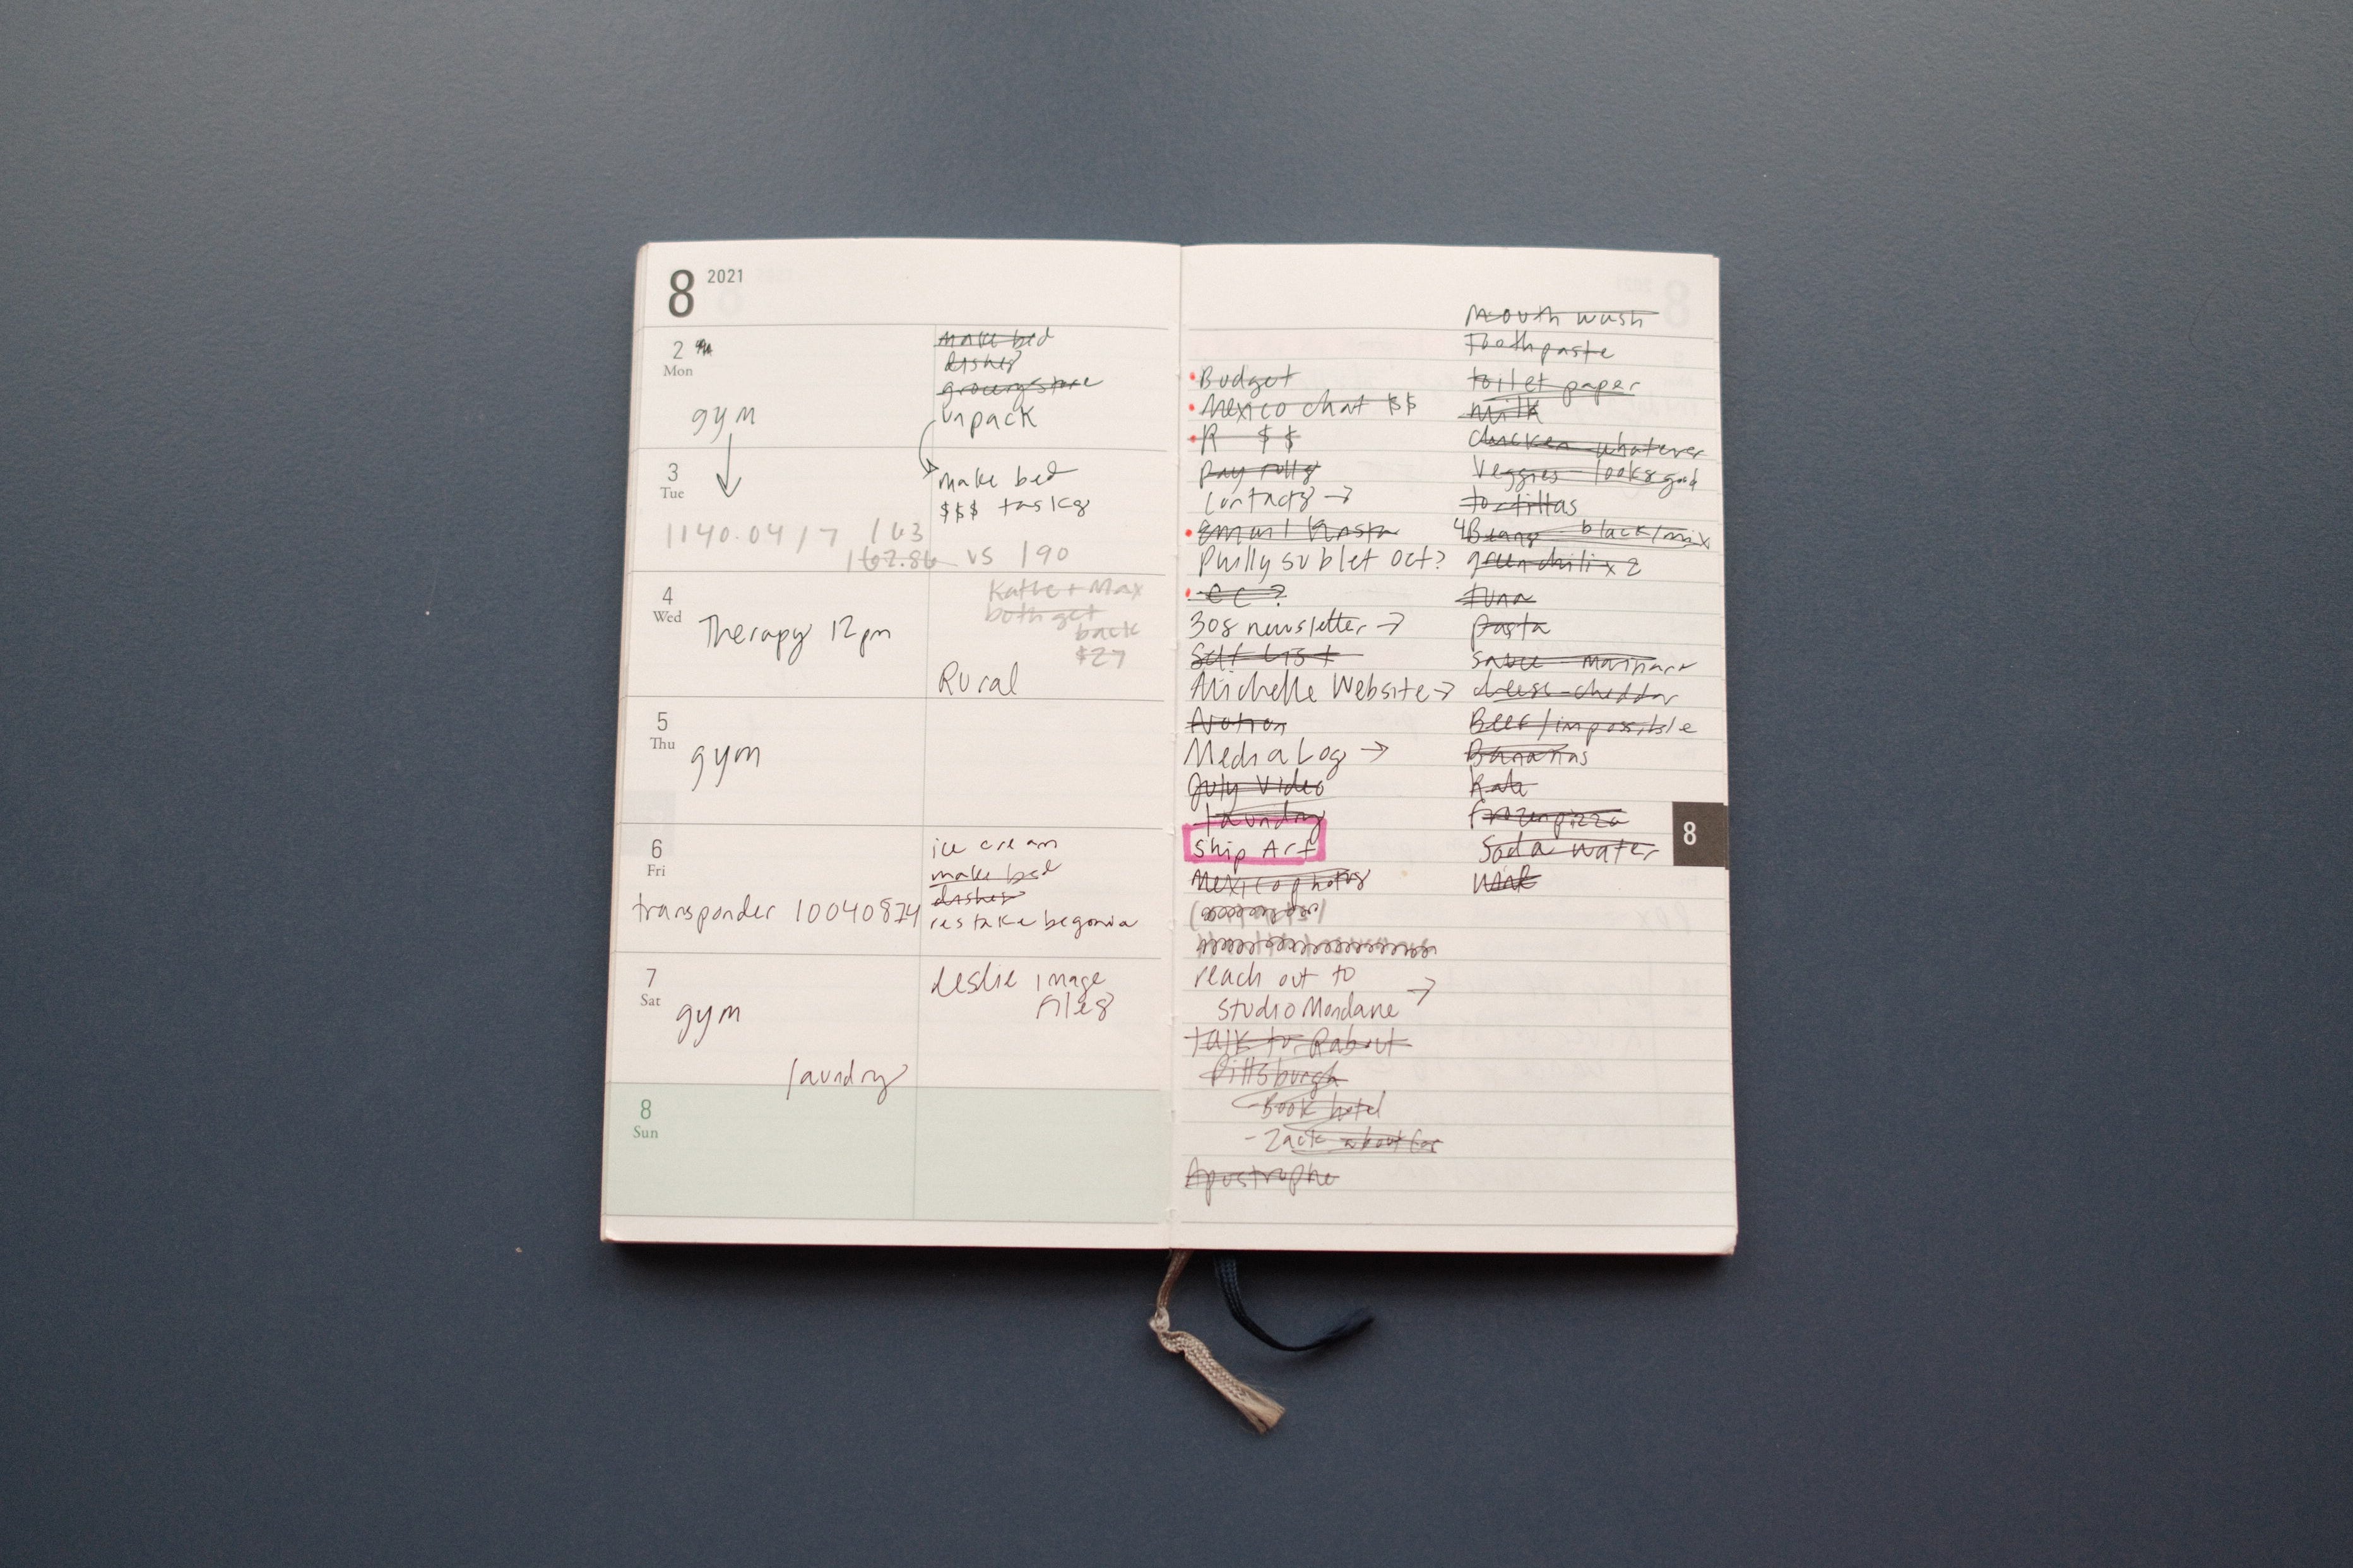 8 2021
2
Mon
gym
make bed
dishes
grocery store
unpack
3
Tue
make bed
$$$ tasks
1140.04 / 7 163
162.86 vs 190
4
Wed
Therapy 12pm
Katie + Max
both get
back
$27
Rural
5
Thu
gym
6
Fri
transponder 10040874
ice cream
make bed
dishes
restake begonia
7
Sat
gym
laundry
Leslie image
files
8
Sun
Budget
Mexico chat $$
R $$
pay
Contacts →
Philly sublet Oct?
CC?
30s newsletter →
Set List
Michelle Website →
Notion
Media Log →
July Video
laundry
Ship Art
Mexico photos
reach out to
Studio Mondane →
talk to R about
Pittsburgh
- Book hotel
- Zack about
Apostrophe
mouth wash
Toothpaste
toilet paper
milk
chicken whatever
Veggies looks good
tortillas
4 Beans black/mix
green chili x 2
tuna
pasta
marinara
cheese - cheddar
Beef/impossible
Bananas
frozen pizza
Soda water
8